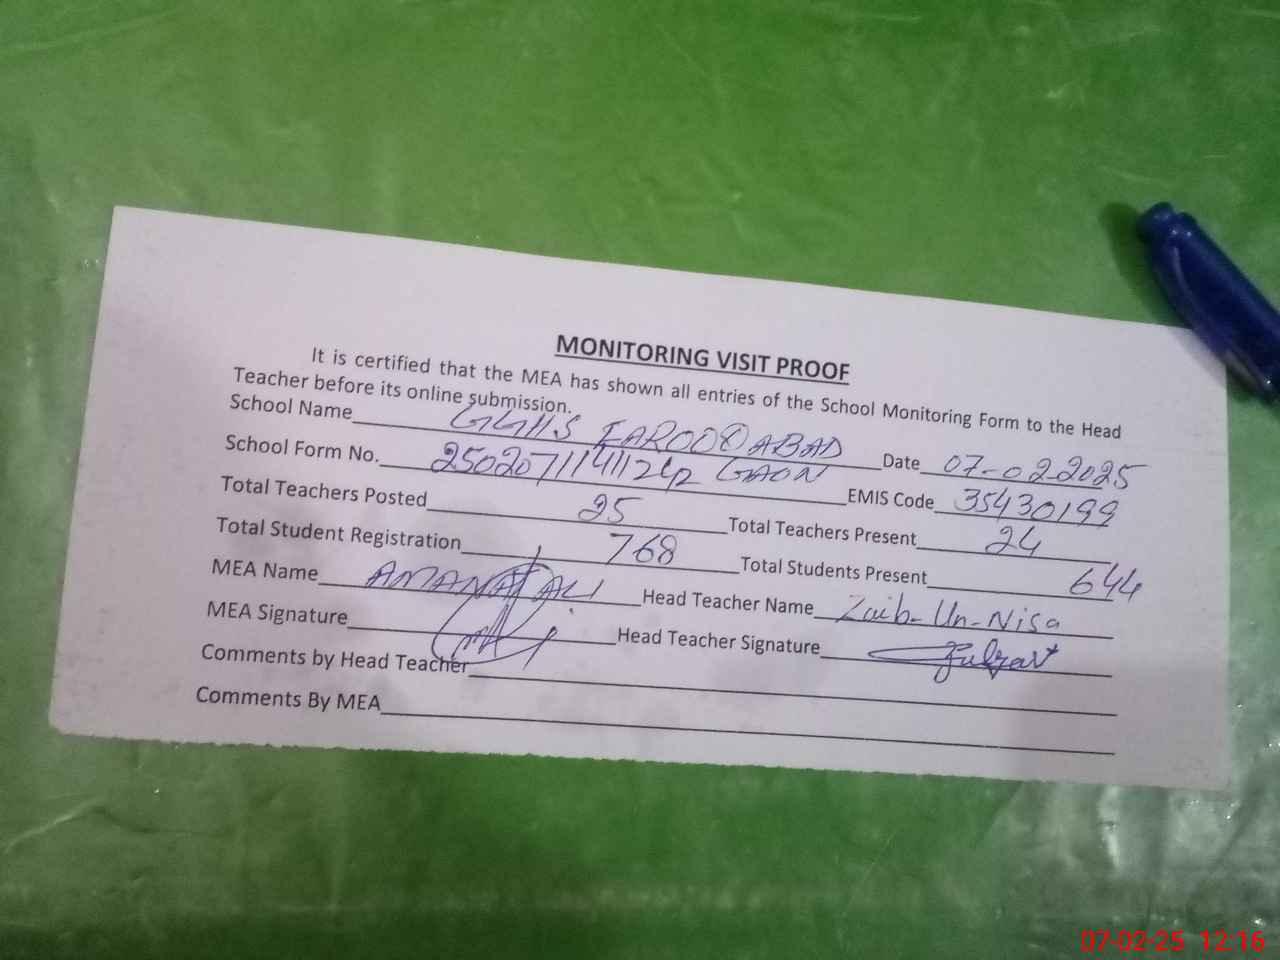 MONITORING VISIT PROOF
It is certified that the MEA has shown all entries of the School Monitoring Form to the Head
Teacher before its online submission.
School Name GGHS FAROOQABAD Date 07-02-2025
School Form No. GAON EMIS Code 35430199
Total Teachers Posted 25 Total Teachers Present 24
Total Student Registration 768 Total Students Present 644
MEA Name AMANAT ALI Head Teacher Name Zaib-Un-Nisa
MEA Signature Head Teacher Signature
Comments by Head Teacher
Comments By MEA
07-02-25 12:16